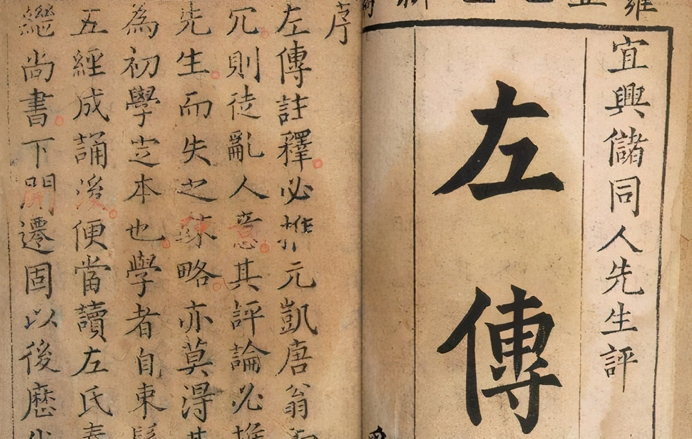 宜興儲同人先生評
左傳
序
左傳註釋必推元凱唐翁
冗則徒亂人意其評論必推
先生而失之疎略亦莫得其
為初學定本也學者自束髮
五經成誦後便當讀左氏春
繼尚書下開遷固以後歷代